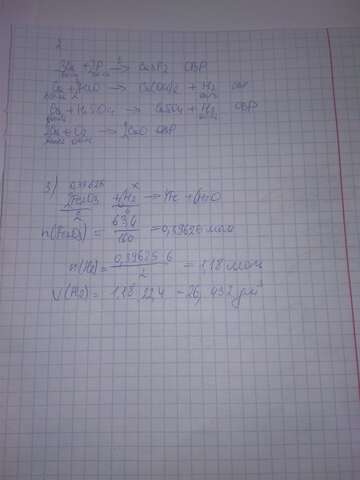 2
3Ca + 2P → Ca3P2 ОВР
Ca + H2O → Ca(OH)2 + H2
Ca + H2SO4 → CaSO4 + H2 ОВР
2Ca + O2 → 2CaO ОВР
3) 0,39625 x
2Fe2O3 + 6H2 → 4Fe + 6H2O
2 6
n(Fe2O3) = 63,4 / 160 = 0,39625 моль
n(H2) = 0,39625 · 6 / 2 = 1,18 моль
V(H2) = 1,18 · 22,4 = 26,432 дм³